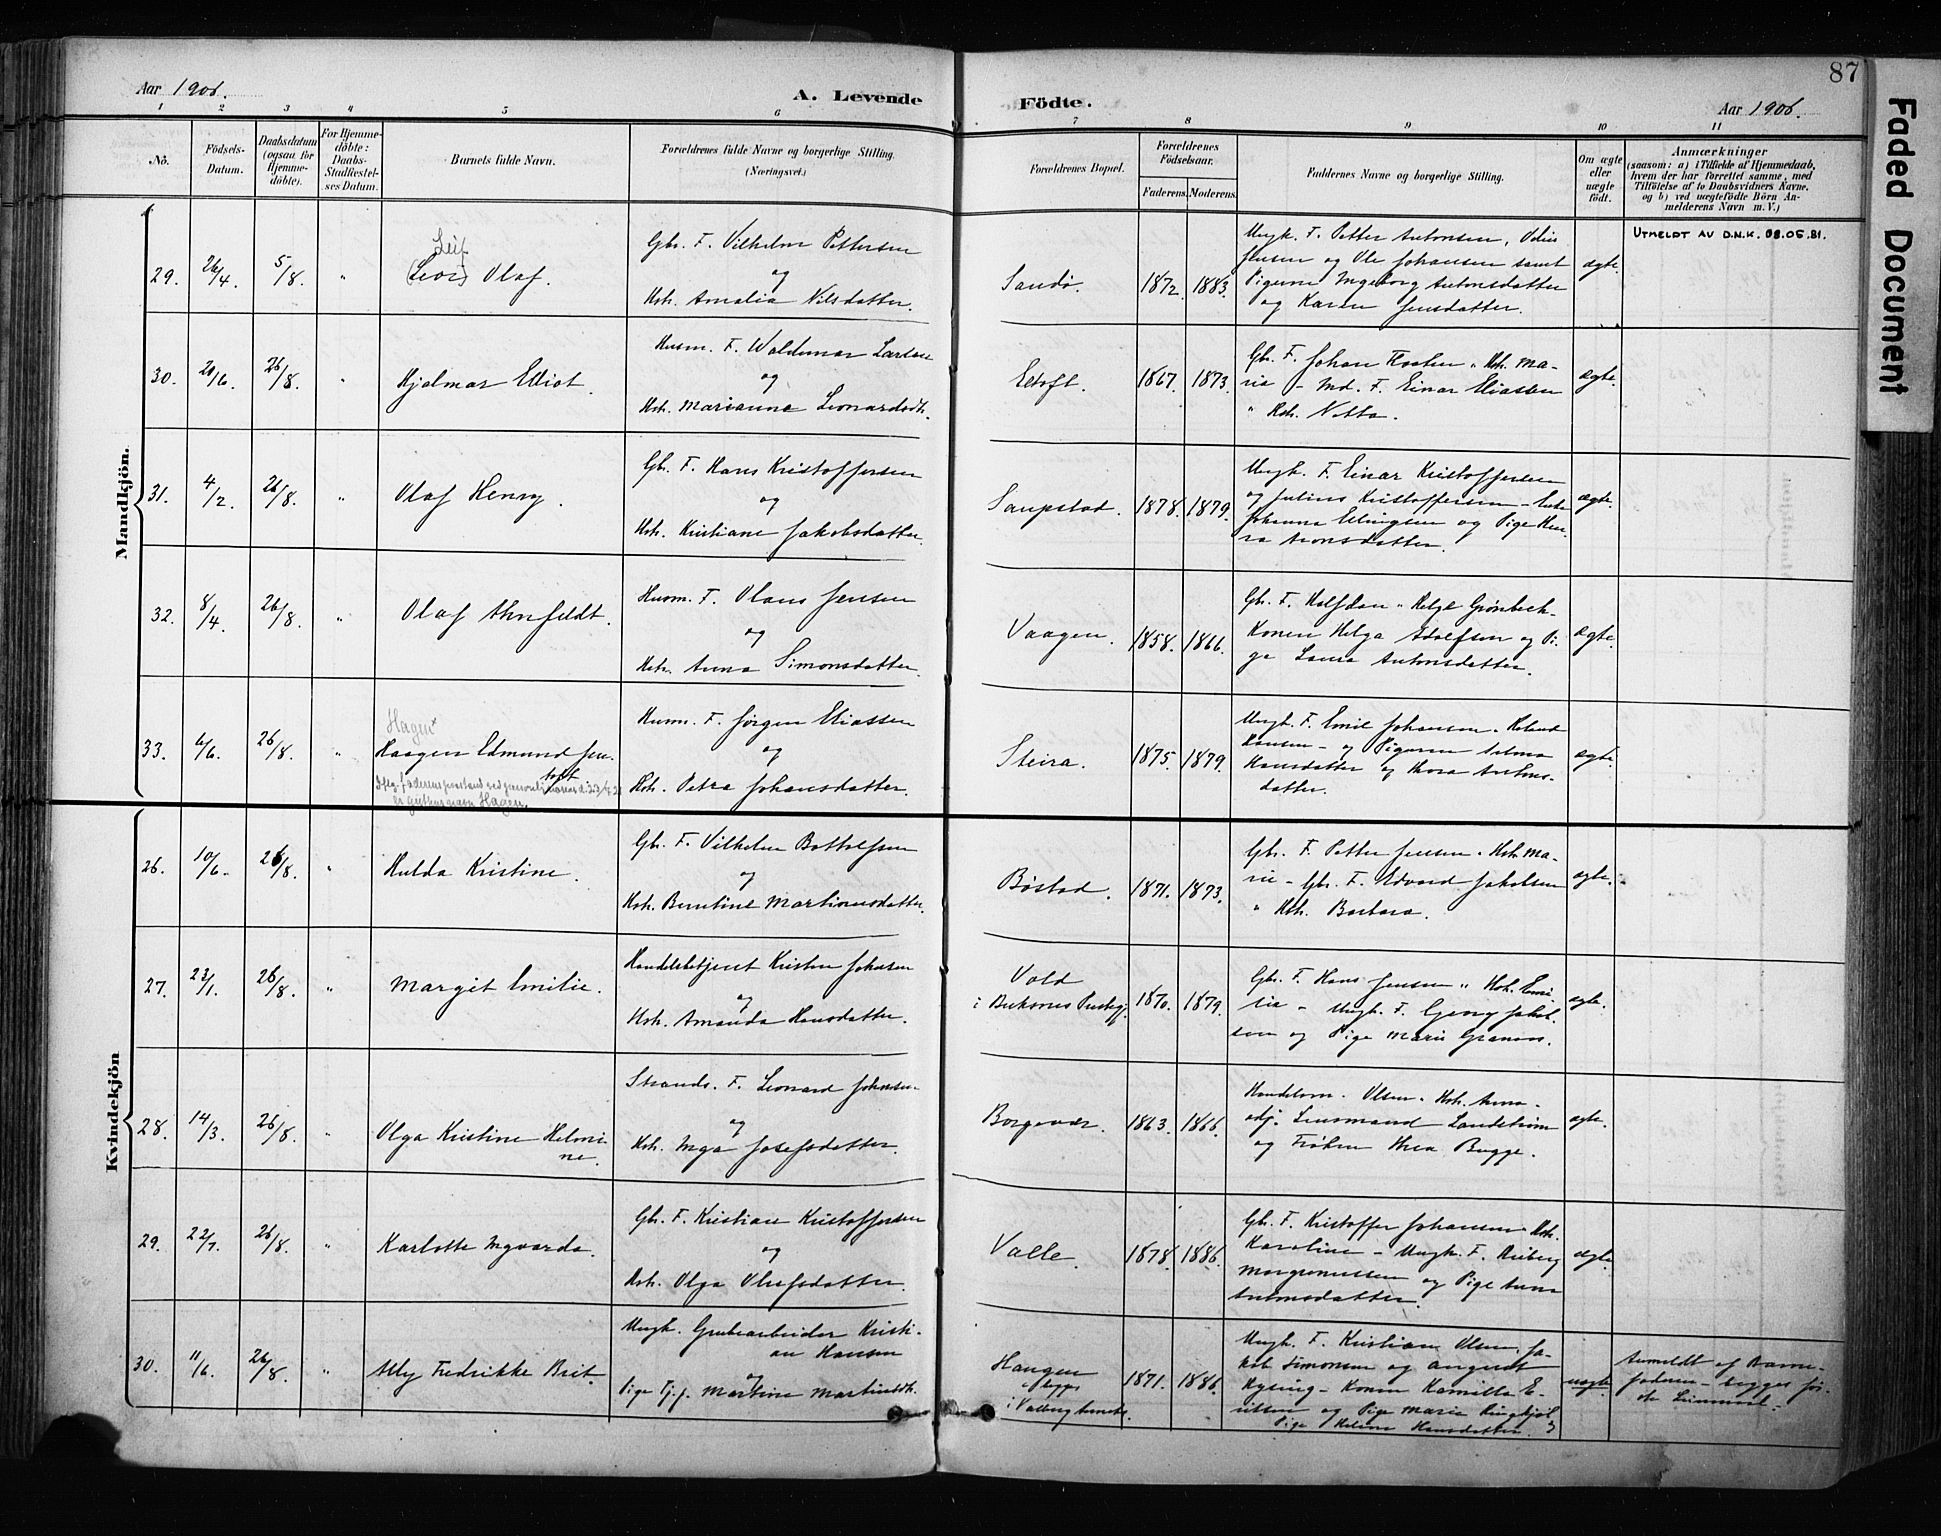 87
Faded Document
Aar 1906.
A. Levende
Födte.
Aar 1906.
1 2 3 4 5 6 7 8 9 10 11
No.
Födsels-
Datum.
Daabsdatum
(ogsaa for
Hjemme-
döbte).
For Hjemme-
döbte:
Daabs-
Stadfæstel-
ses Datum.
Barnets fulde Navn.
Forældrenes fulde Navne og borgerlige Stilling.
(Næringsvei.)
Forældrenes Bopæl.
Forældrenes
Födselsaar.
Faderens. Moderens.
Faddernes Navne og borgerlige Stilling.
Om ægte
eller
uægte
födt.
Anmærkninger
(saasom: a) i Tilfælde af Hjemmedaab,
hvem der har forrettet samme, med
Tilföielse af to Daabsvidners Navne.
og b) ved uægtefödte Börn An-
melderens Navn m. V.)
Mandkjön.
29. 26/4. 5/8. "
Leif
Olaf.
Gbr. F. Vilhelm Pettersen
og
Hstr. Amalia Nilsdatter.
Sandø. 1872. 1883.
Ungk. F. Petter Antonsen, Odin
Jensen og Ole Johansen samt
Pigerne Ingeborg Antonsdatter
og Karen Jensdatter.
ægte.
UTMELDT AV D.N.K. 08.05.81.
30. 20/6. 26/8. "
Hjalmar Elliot.
Husm. F. Waldemar Larsen
og
Hstr. Marianna Leonardsdtr.
Eltoft. 1867. 1873.
Gbr. F. Johan " Hstr. Ma-
rie - Md. F. Einar Eliassen
" Hstr. Netta.
ægte.
31. 4/2. 26/8. "
Olaf Henry.
Gbr. F. Hans Kristoffersen
og
Hstr. Kristiane Jakobsdatter.
Saupstad. 1878. 1879.
Ungk. F. Einar Kristoffersen
og Julius Kristoffersen - Enke
Johanna Ellingsen og Pige
Aronsdatter.
ægte.
32. 8/4. 26/8. "
Olaf Arnfeldt.
Husm. F. Olaus Jensen
og
Hstr. Anna Simonsdatter.
Vaagen. 1858. 1866.
Gbr. F. Halfdan " Helge Grønbech -
Konen Helga Adolfsen og Pi-
ge Laura Antonsdatter.
ægte.
33. 6/6. 26/8. "
Hagen
Haagen Edmund Jen-
toft
Husm. F. Jørgen Eliassen
og
Hstr. Petra Johansdatter.
Steira. 1875. 1879.
Ungk. F. Emil Johansen, Roland
Hansen - og Pigerne Selma
Hansdatter og Thora Antons-
datter.
ægte.
Kvindekjön
26. 10/6. 26/8. "
Hulda Kristine.
Gbr. F. Vilhelm Bottolfsen
og
Hstr. Berntine Martinusdatter.
Bøstad. 1871. 1873.
Gbr. F. Petter Jensen " Hstr. Ma-
rie - Gbr. F. Edvard Jakobsen
" Hstr. Barbara.
ægte.
27. 23/1. 26/8. "
Margit Emilie.
Handelsbetjent Kristen Johnsen
og
Hstr. Amanda Hansdatter.
Vold
i Buksnes Prestegj.
1870. 1879.
Gbr. F. Hans Jensen " Hstr. Emi-
lie - Ungk. F. Georg Jakob-
sen og Pige Marie
ægte.
28. 14/3. 26/8. "
Olga Kristine Helmi-
ne.
Strands. F. Leonard Johnsen
og
Hstr. Inga Josefsdatter.
Borgevær. 1863. 1866.
Handelsm. Olsen " Hstr. Anna -
adj. Lensmand Landstrøm
og Frøken Thea Bugge.
ægte.
29. 22/7. 26/8. "
Karlotte Ingvarda.
Gbr. F. Kristian Kristoffersen
og
Hstr. Olga Olufsdatter.
Valle. 1878. 1886.
Gbr. F. Kristoffer Johansen " Hstr.
Karoline - Ungk. F. Riberg
og Pige Anna
Antonsdatter.
ægte.
30. 11/6. 26/8. "
Ally Fredrikke Brit.
Ungk. Grubearbeider Kristi-
an Hansen
og
Pige Tj.j. Martine Martinsdtr.
Haugen
i Valberg Annex.
1871. 1886.
Ungk. F. Kristian Olsen, Ja-
kob Simonsen og August
- Konen Kamilla E-
riksen og Pige Marie
Pige Helene Hansdatter.
uægte.
Anmeldt af Barne-
faderen - begges før-
ste Leiermaal.